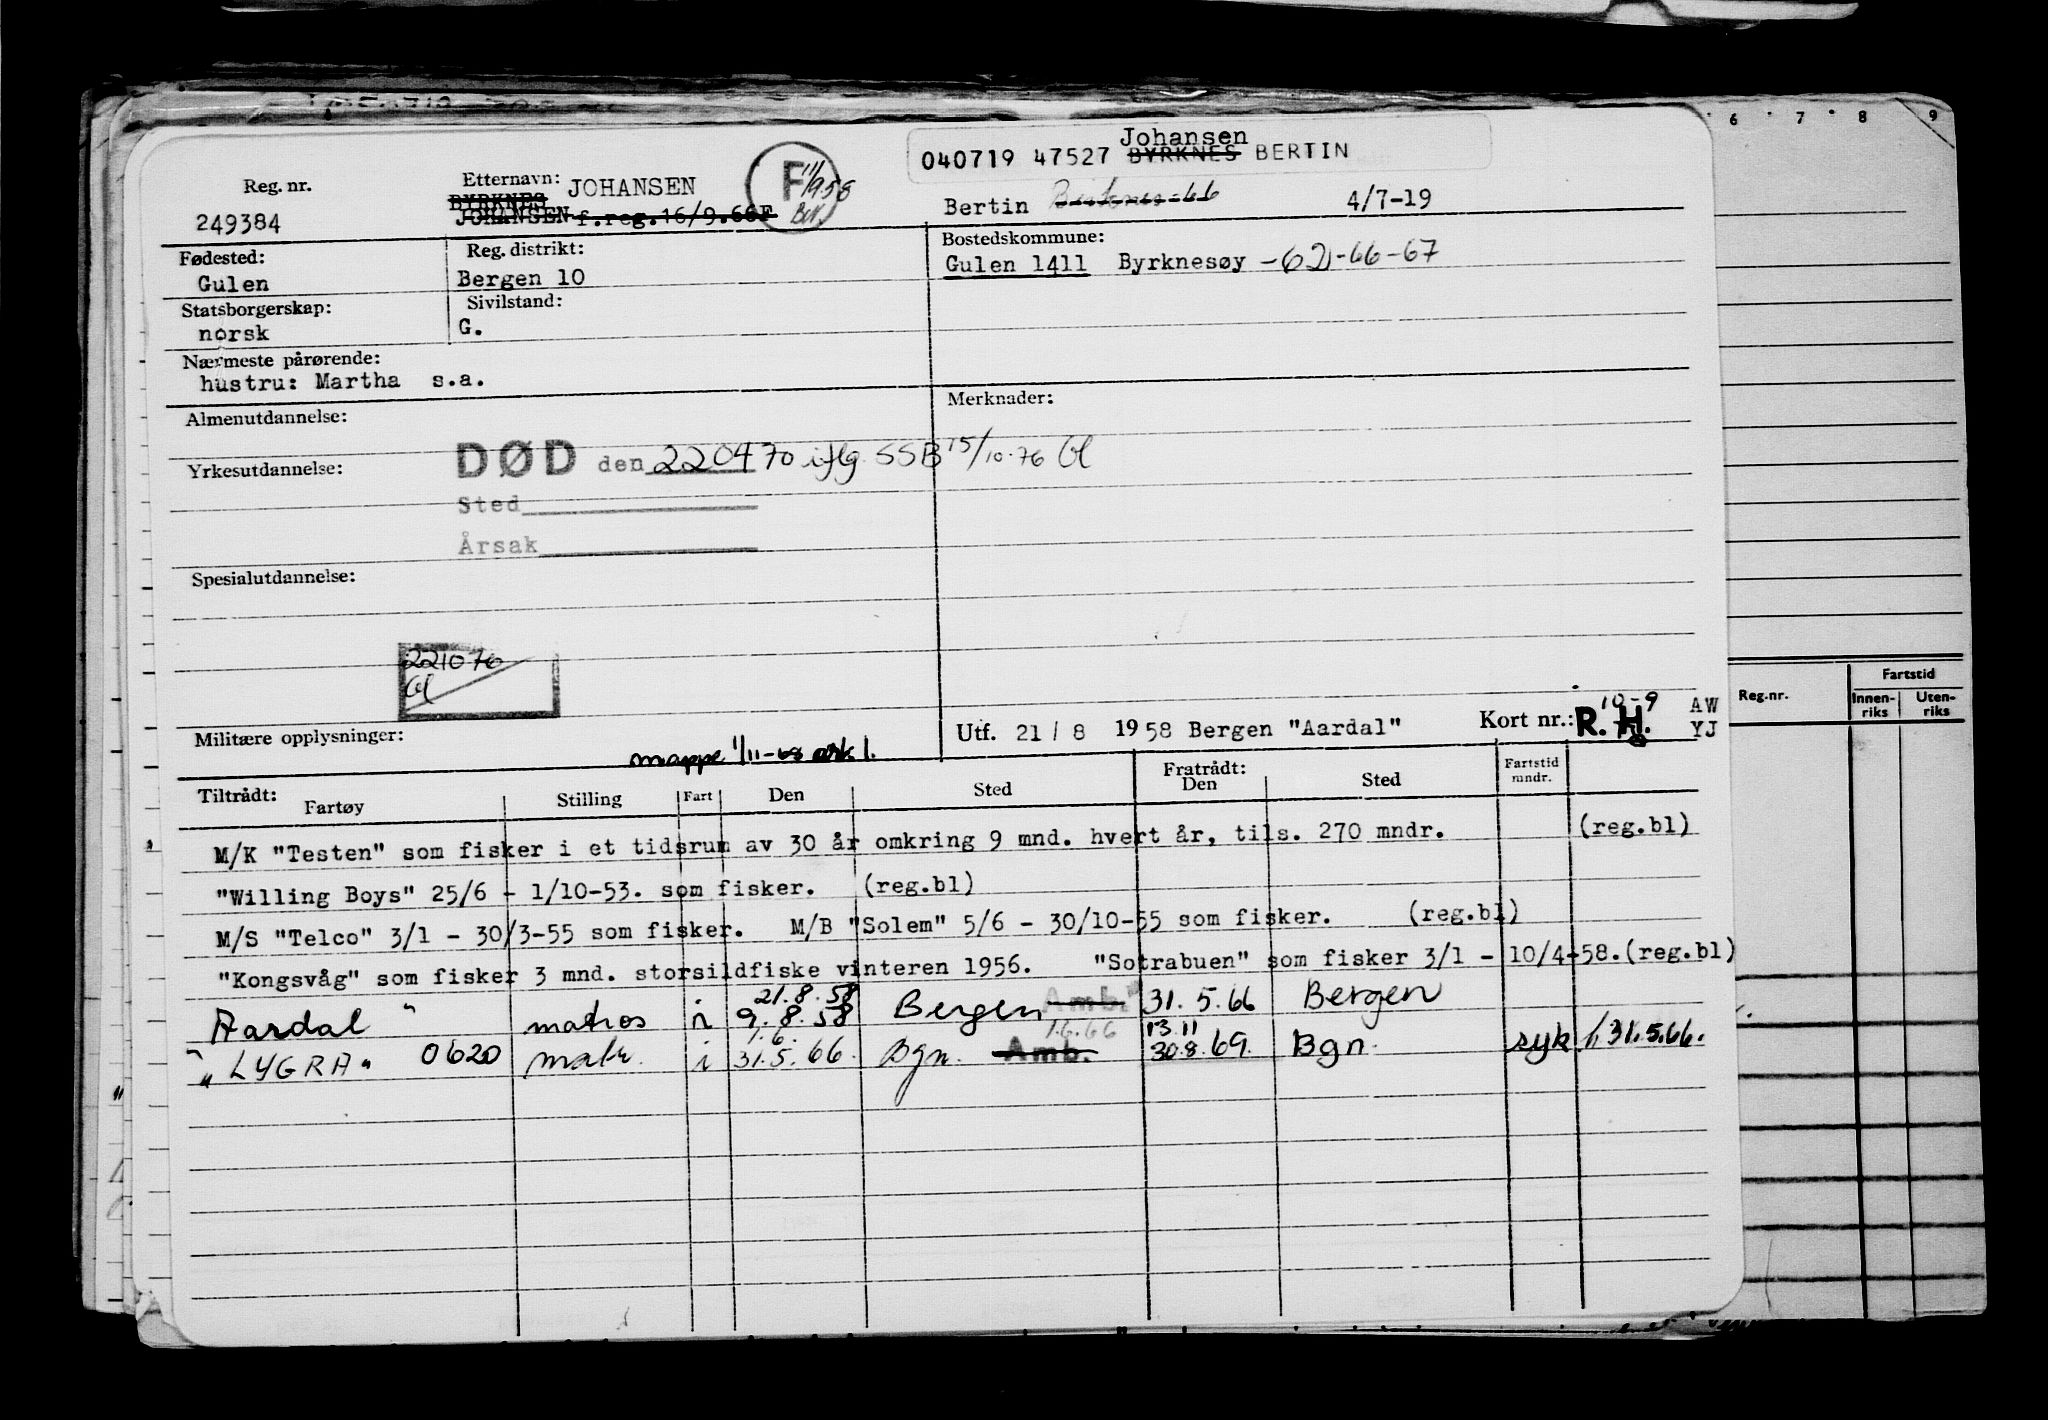 Johansen
040719 47527 BYRKNES BERTIN
Reg. nr.
249384
Etternavn: JOHANSEN
BYRKNES
JOHANSEN f.reg.16/9.66F
F 11/9 58
Bertin 4/7-19
Fødested:
Gulen
Reg. distrikt:
Bergen 10
Bostedskommune:
Gulen 1411 Byrknesøy -62-66-67
Statsborgerskap:
norsk
Sivilstand:
G.
Nærmeste pårørende:
hustru: Martha s.a.
Almenutdannelse:
Merknader:
Yrkesutdannelse:
DØD den 220470 iflg. SSB 15/10.76 Gl
Sted
Årsak
Spesialutdannelse:
221076
Gl
Militære opplysninger:
mappe 1/11-68 ark 1.
Utf. 21/8 1958 Bergen "Aardal"
Kort nr.: R. H.
10-9
AW
YJ
Tiltrådt:
Fartøy
Stilling
Fart
Den
Sted
Fratrådt:
Den
Sted
Fartstid
mndr.
M/K "Testen" som fisker i et tidsrum av 30 år omkring 9 mnd. hvert år, tils. 270 mndr. (reg.bl)
"Willing Boys" 25/6 - 1/10-53. som fisker. (reg.bl)
M/S "Telco" 3/1 - 30/3-55 som fisker. M/B "Solem" 5/6 - 30/10-55 som fisker. (reg.bl)
"Kongsvåg" som fisker 3 mnd. storsildfiske vinteren 1956. "Sotrabuen" som fisker 3/1 - 10/4-58.(reg.bl)
21.8.58
Aardal " matros i 9.8.58 Bergen Amb. 31.5.66 Bergen
1.6. 1.6.66 13.11
"LYGRA" 0620 matr. i 31.5.66. Bgn. Amb. 30.8.69. Bgn. syk 1. 31.5.66.
6 7 8 9
Reg.nr.
Fartstid
Innen-
riks
Uten-
riks